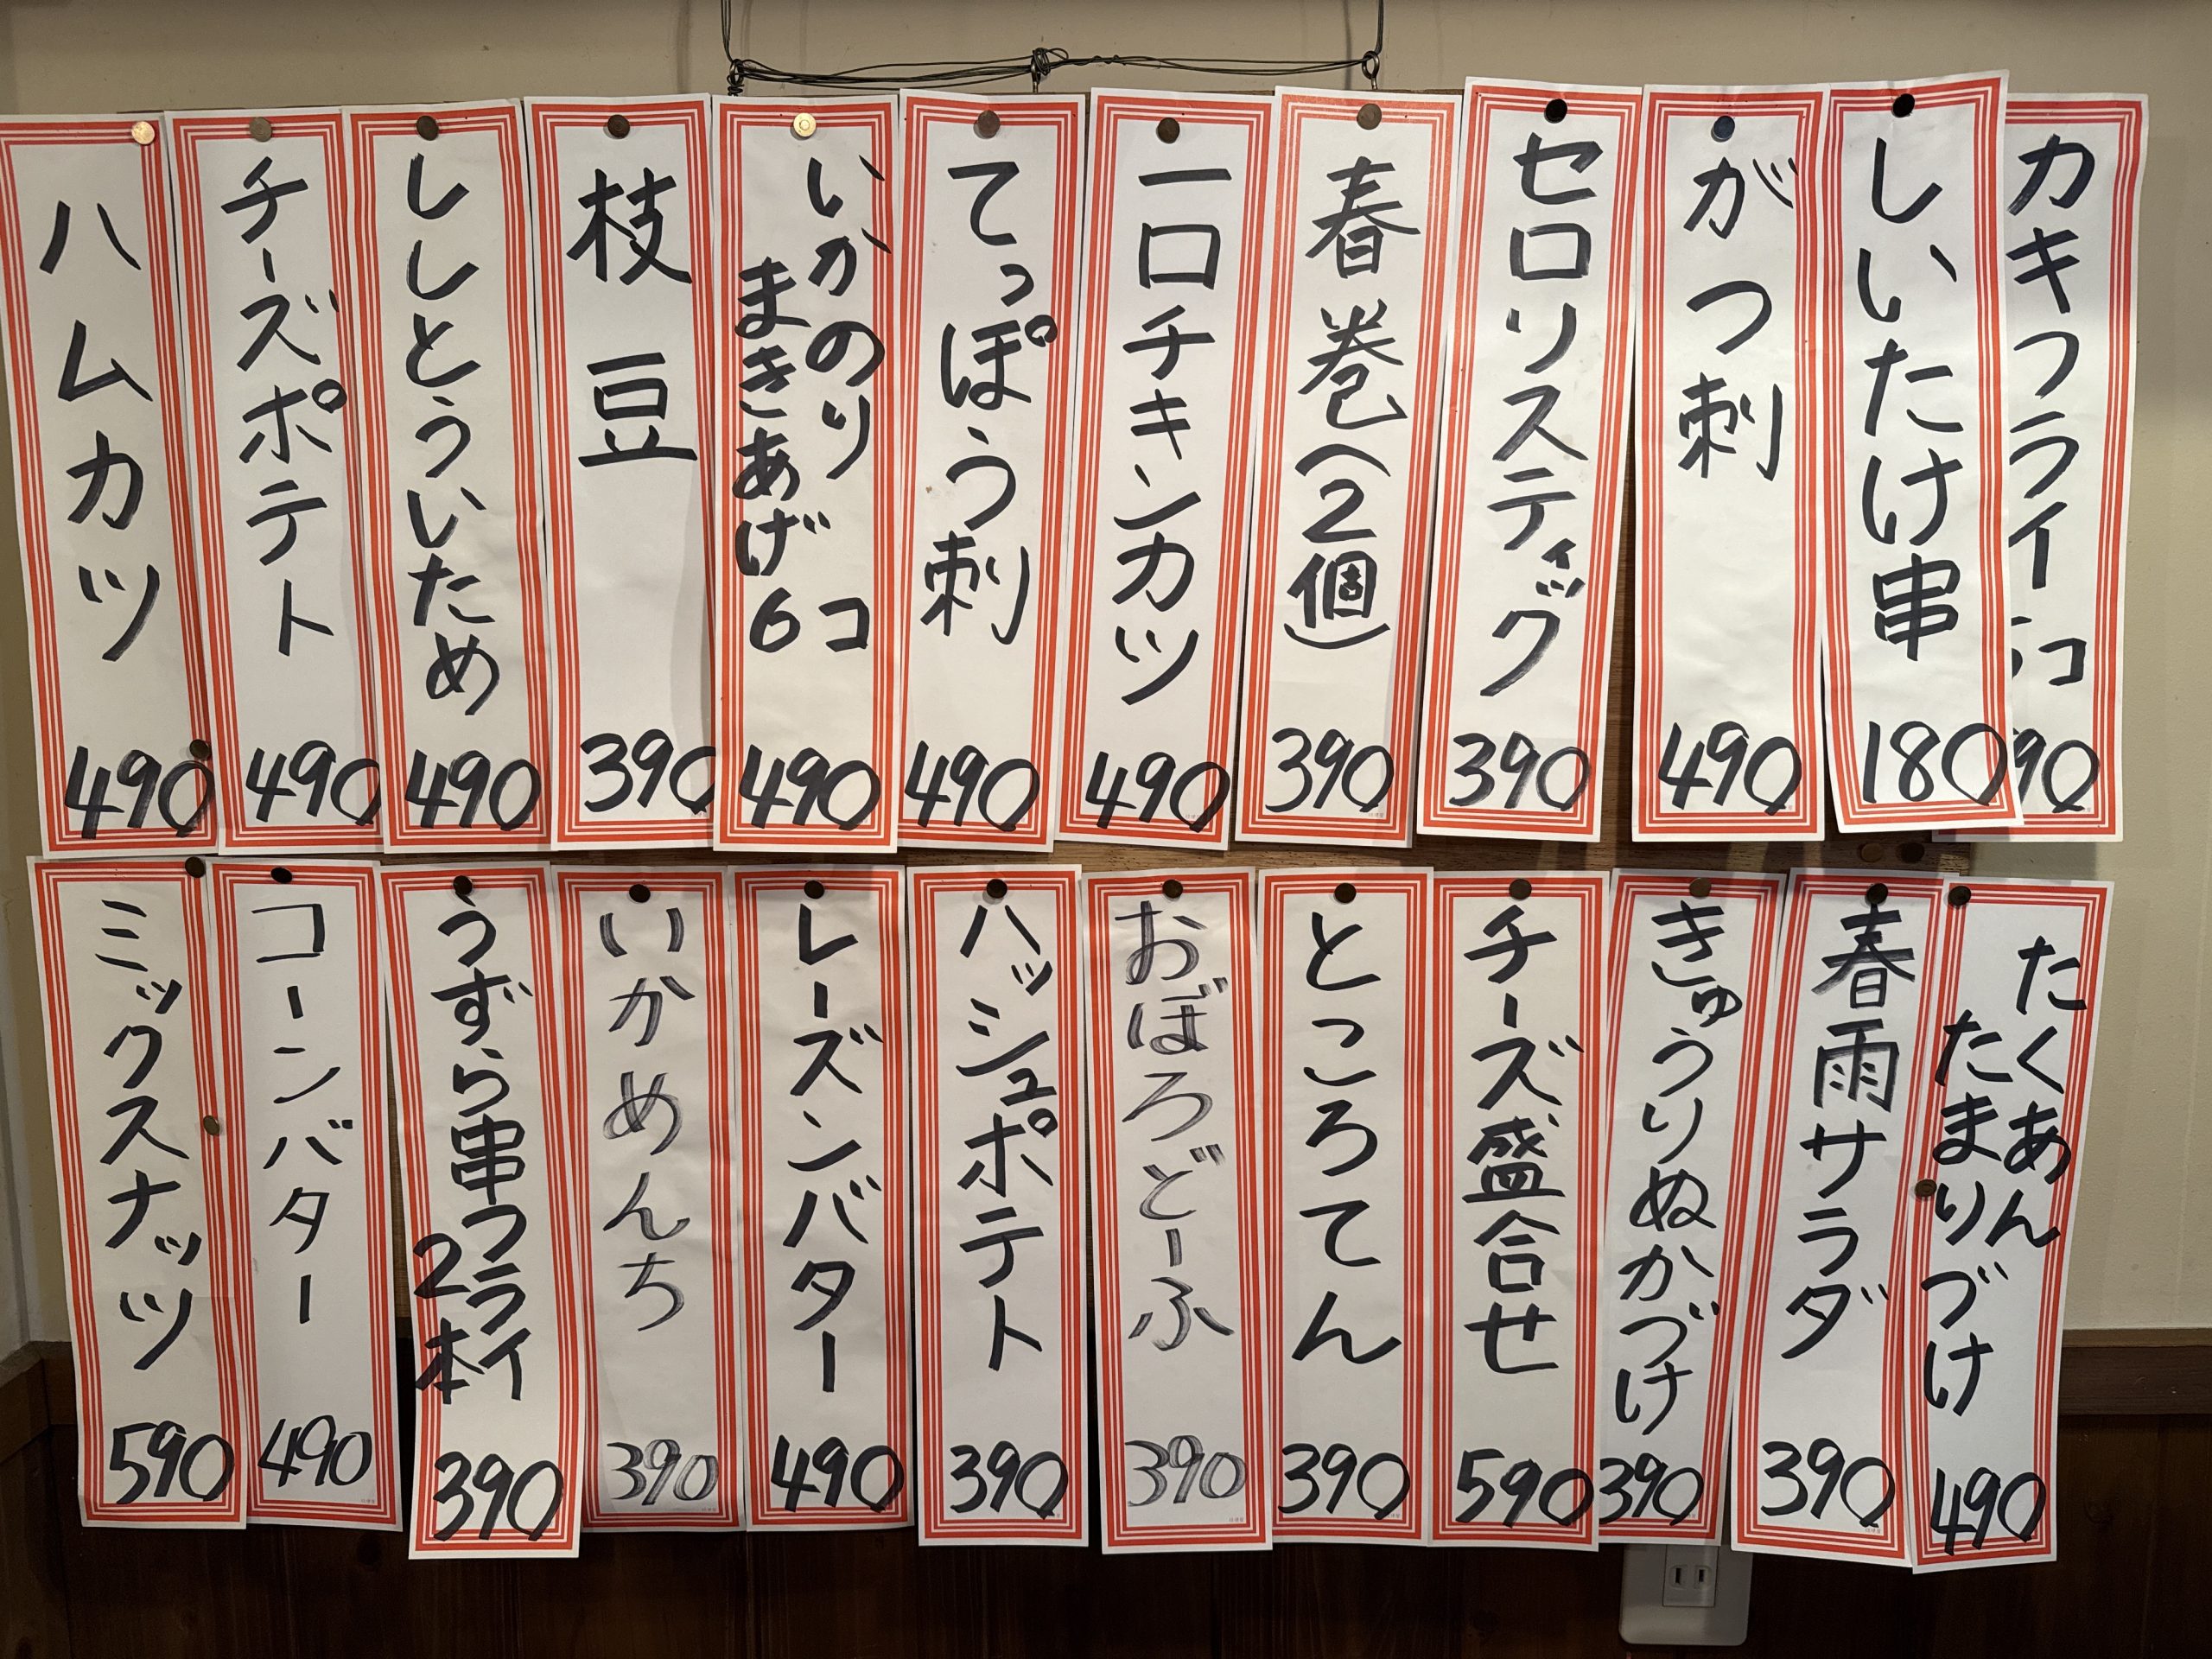 カキフライ
コ
90
しいたけ串
180
がつ刺
490
セロリスティック
390
春巻(2個)
390
一口チキンカツ
490
てっぽう刺
490
いかのり
まきあげ6コ
490
枝豆
390
ししとういため
490
チーズポテト
490
ハムカツ
490
たくあん
たまりづけ
490
春雨サラダ
390
きゅうりぬかづけ
390
チーズ盛合せ
590
ところてん
390
おぼろどーふ
390
ハッシュポテト
390
レーズンバター
490
いかめんち
390
うずら串フライ
2本
390
コーンバター
490
ミックスナッツ
590